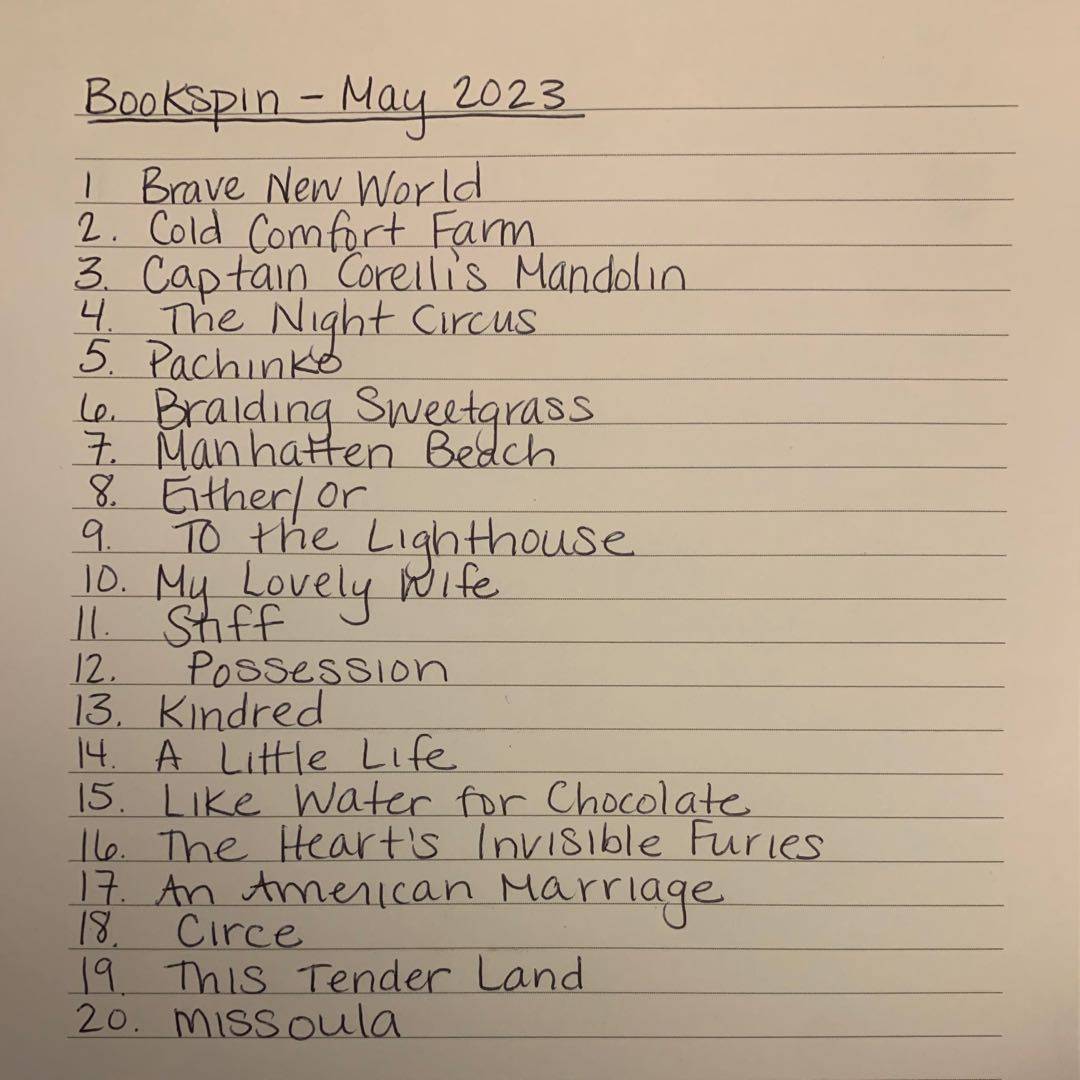 Bookspin - May 2023
1 Brave New World
2. Cold Comfort Farm
3. Captain Corelli's Mandolin
4. The Night Circus
5. Pachinko
6. Braiding Sweetgrass
7. Manhatten Beach
8. Either/Or
9. To the Lighthouse
10. My Lovely Wife
11. Stiff
12. Possession
13. Kindred
14. A Little Life
15. Like Water for Chocolate
16. The Heart's Invisible Furies
17. An American Marriage
18. Circe
19. This Tender Land
20. Missoula